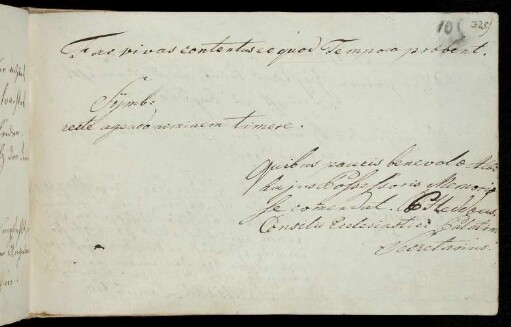 105 325)
Fac vivas contentus eo quod Tempora præbent.
Symb:
recte agendo neminem timere.
Quibus paucis benevolæ
hujus Possessoris Memoriæ
se comendat.
Consilii Ecclesiastici Palatin
Secretarius.